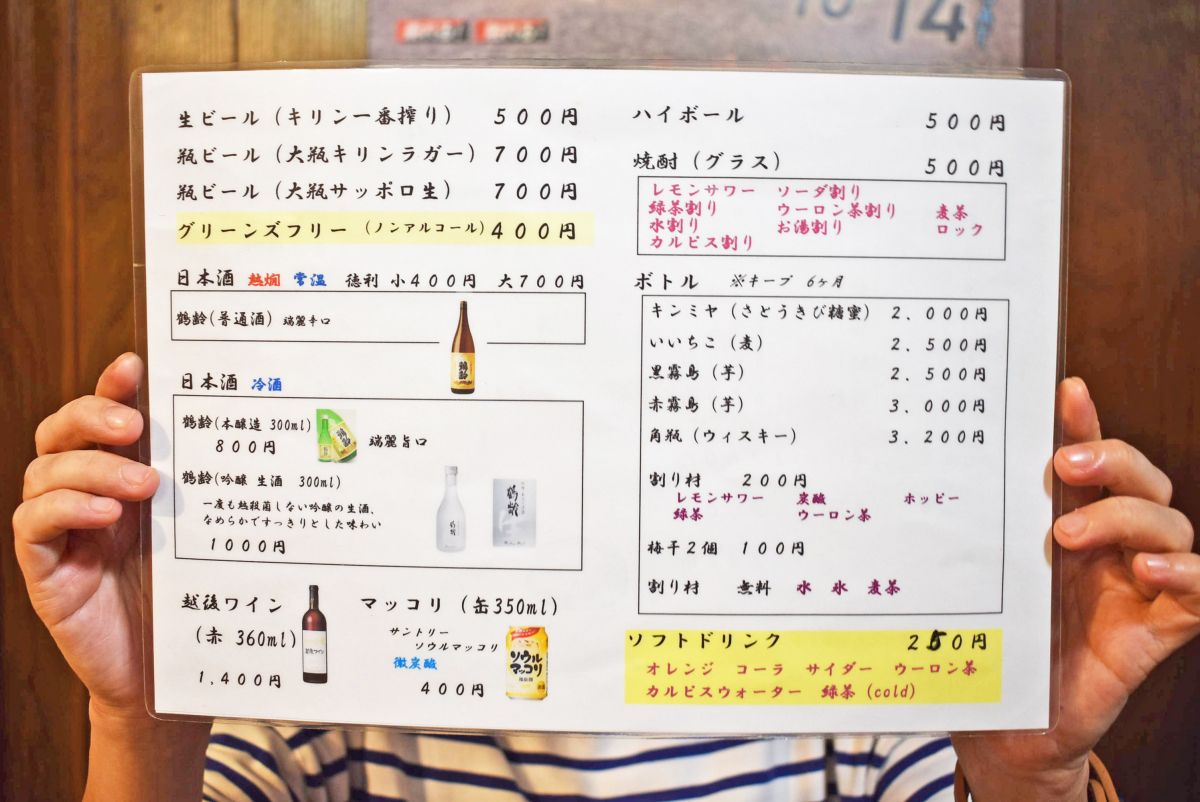 14
生ビール (キリン一番搾り) 500円
瓶ビール (大瓶キリンラガー) 700円
瓶ビール (大瓶サッポロ生) 700円
グリーンズフリー (ノンアルコール) 400円
日本酒 熱燗 常温 徳利 小400円 大700円
鶴齢(普通酒) 瑞麗辛口
鶴齢
日本酒 冷酒
鶴齢(本醸造 300ml)
800円 瑞麗旨口
鶴齢(吟醸 生酒 300ml)
一度も熱殺菌しない吟醸の生酒、
なめらかですっきりとした味わい
1000円
鶴齢
鶴齢
越後ワイン
(赤 360ml)
1,400円
マッコリ (缶350ml)
サントリー
ソウルマッコリ
微炭酸
400円
ソウル
マッコリ
ハイボール 500円
焼酎 (グラス) 500円
レモンサワー ソーダ割り
緑茶割り ウーロン茶割り 麦茶
水割り お湯割り ロック
カルピス割り
ボトル ※キープ 6ヶ月
キンミヤ (さとうきび糖蜜) 2、000円
いいちこ (麦) 2、500円
黒霧島 (芋) 2、500円
赤霧島 (芋) 3、000円
角瓶 (ウィスキー) 3、200円
割り材 200円
レモンサワー 炭酸 ホッピー
緑茶 ウーロン茶
梅干2個 100円
割り材 無料 水 氷 麦茶
ソフトドリンク 250円
オレンジ コーラ サイダー ウーロン茶
カルピスウォーター 緑茶 (cold)